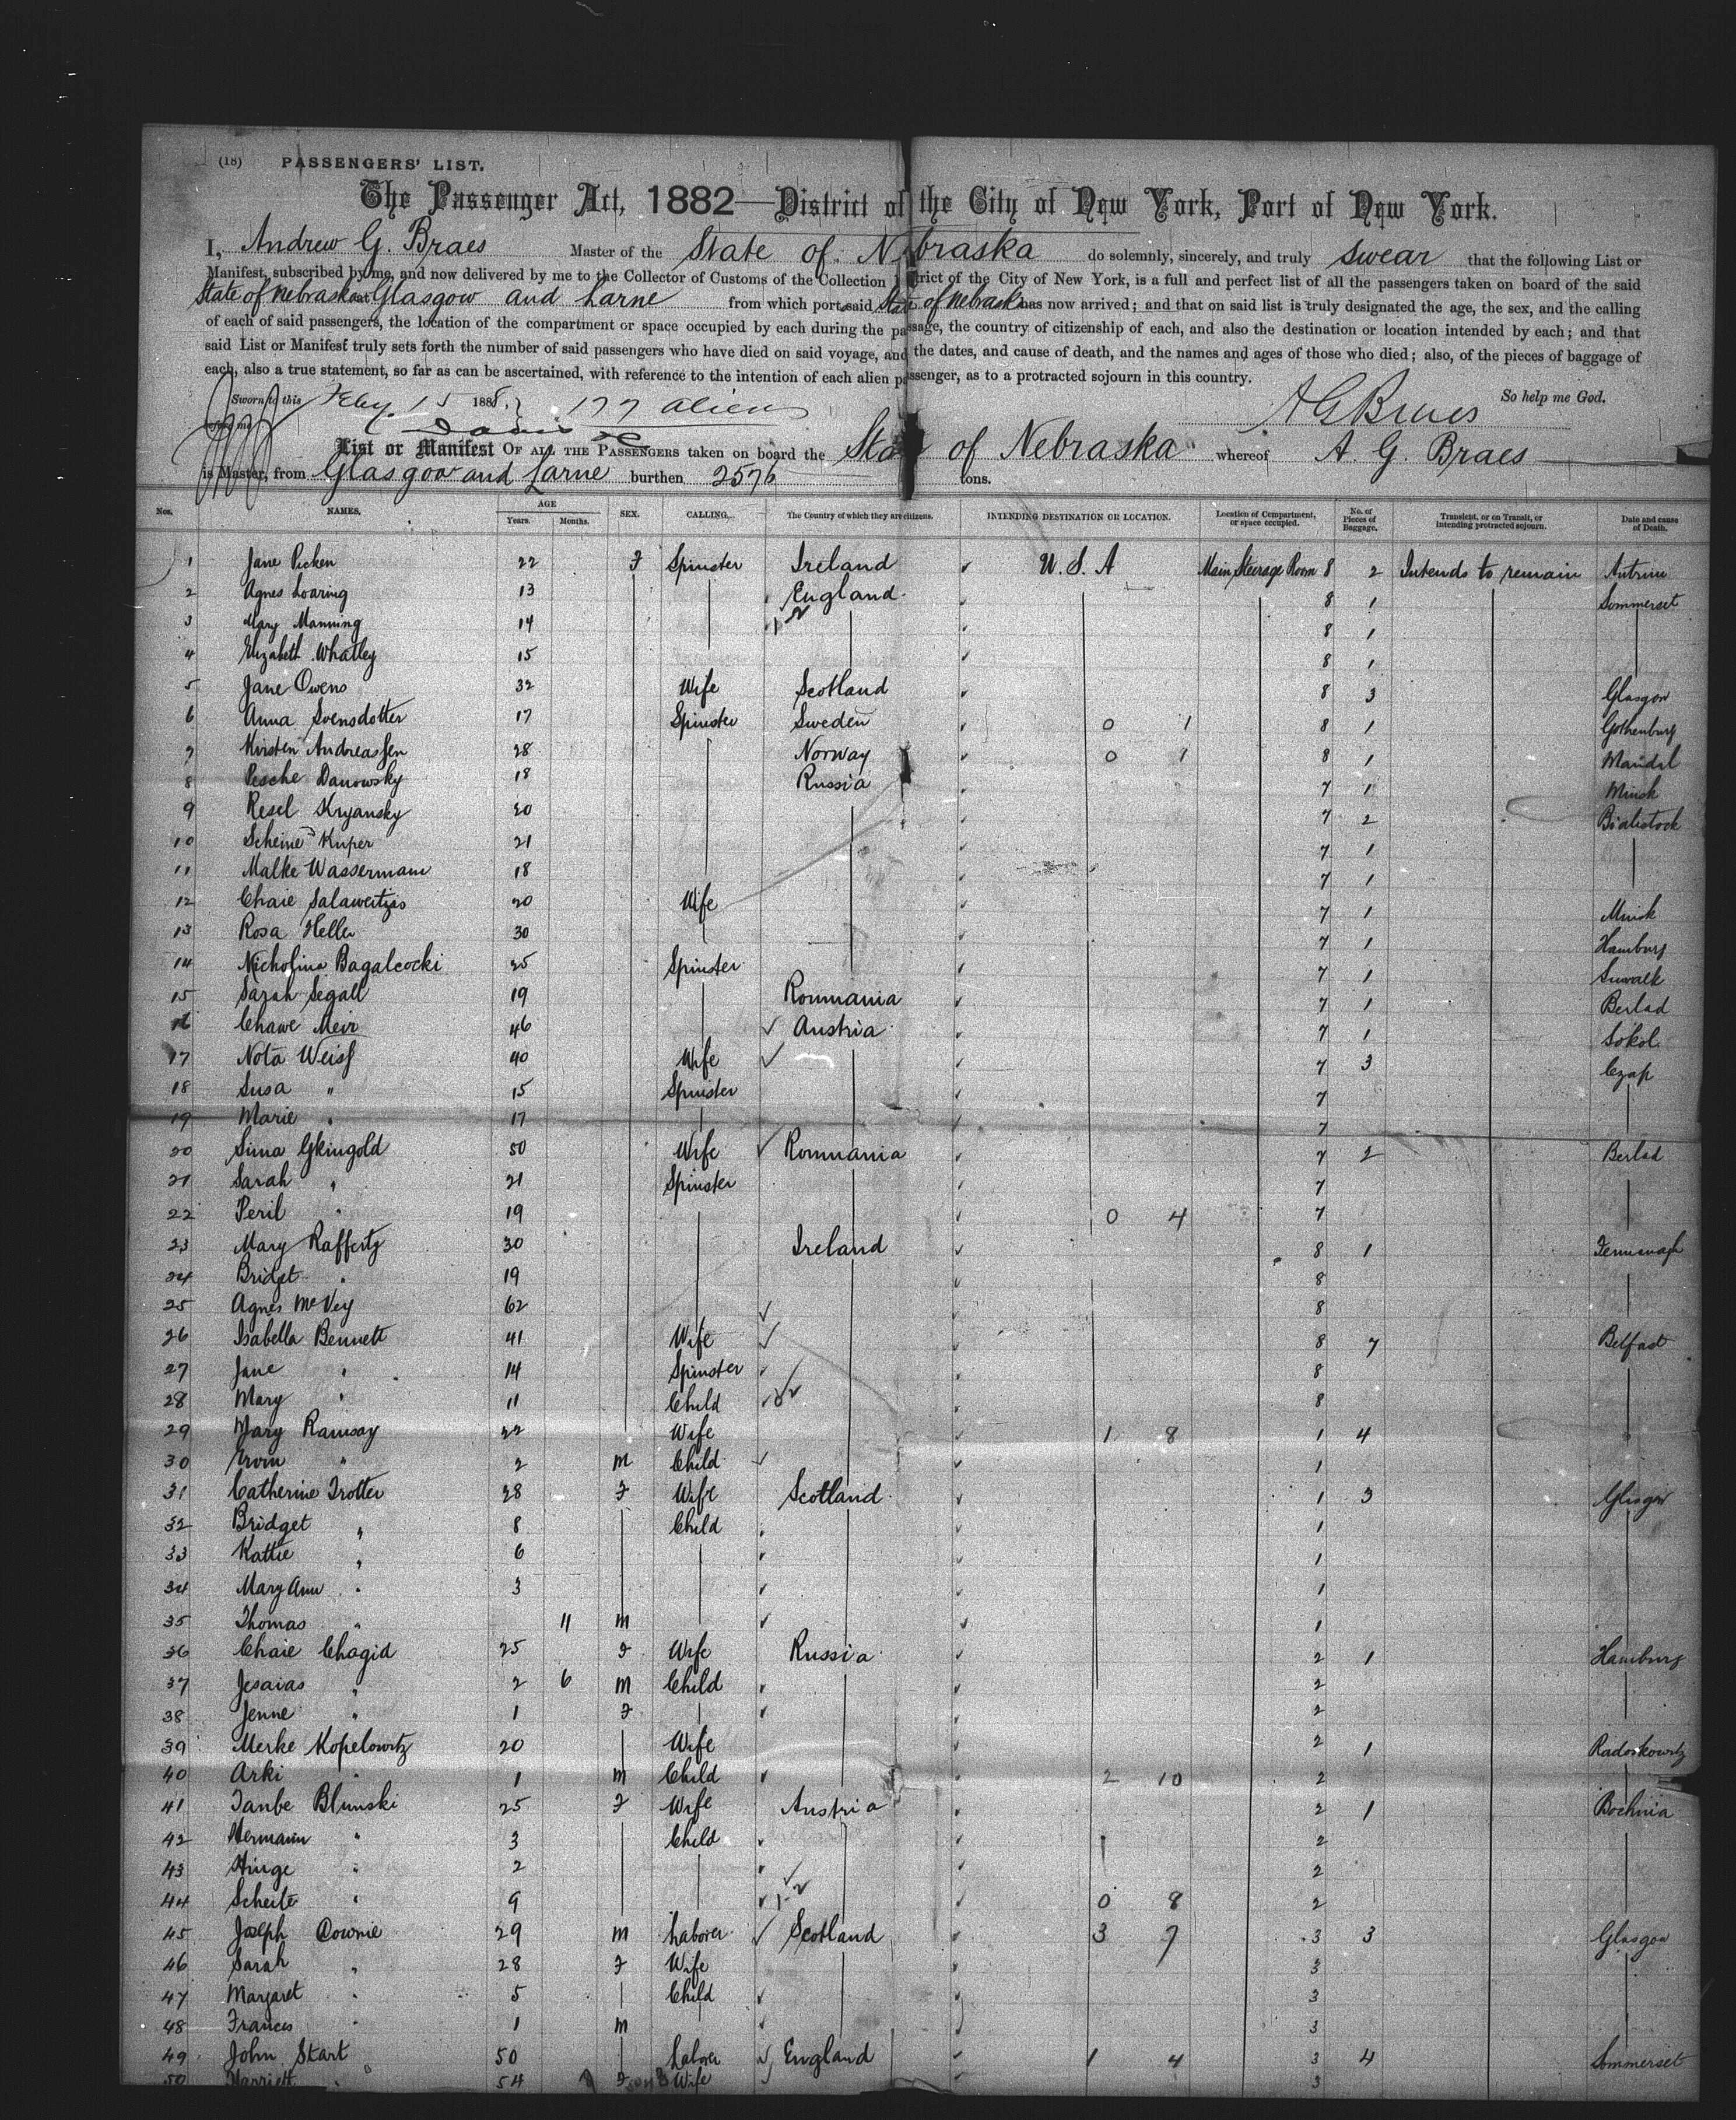 (18) PASSENGERS' LIST.
The Passenger Act, 1882—District of the City of New York, Port of New York.
I, Andrew G. Braes Master of the State of Nebraska do solemnly, sincerely, and truly swear that the following List or
Manifest, subscribed by me, and now delivered by me to the Collector of Customs of the Collection District of the City of New York, is a full and perfect list of all the passengers taken on board of the said
State of Nebraska at Glasgow and Larne from which port said State of Nebraska has now arrived; and that on said list is truly designated the age, the sex, and the calling
of each of said passengers, the location of the compartment or space occupied by each during the passage, the country of citizenship of each, and also the destination or location intended by each; and that
said List or Manifest truly sets forth the number of said passengers who have died on said voyage, and the dates, and cause of death, and the names and ages of those who died; also, of the pieces of baggage of
each, also a true statement, so far as can be ascertained, with reference to the intention of each alien passenger, as to a protracted sojourn in this country.
Sworn to this Feby. 15 1888. 177 aliens A G Braes So help me God.
before me
List or Manifest OF ALL THE PASSENGERS taken on board the State of Nebraska whereof A. G. Braes
is Master, from Glasgow and Larne burthen 2576 tons.
Nos. NAMES. AGE Years. Months. SEX. CALLING. The Country of which they are citizens. INTENDING DESTINATION OR LOCATION. Location of Compartment, or space occupied. No. of Pieces of Baggage. Transient, or on Transit, or intending protracted sojourn. Date and cause of Death.
1 Jane Picken 22 F Spinster Ireland U.S.A Main Steerage Room 8 2 Intends to remain Antrim
2 Agnes Loaring 13 England 8 1 Sommerset
3 Mary Manning 14 8 1
4 Elizabeth Whatley 15 8 1
5 Jane Owens 32 Wife Scotland 8 3 Glasgow
6 Anna Svensdotter 17 Spinster Sweden 0 1 8 1 Gothenburg
7 Kirsten Andreassen 28 Norway 0 1 8 1 Mandal
8 Pesche Danowsky 18 Russia 7 1 Minsk
9 Resel Kryansky 20 7 2 Bialistock
10 Scheine Kuper 21 7 1
11 Malke Wassermann 18 7 1
12 Chaie Salaweitzas 20 Wife 7 1 Minsk
13 Rosa Heller 30 7 1 Hamburg
14 Nicholina Bagalcocki 25 Spinster 7 1 Suwalk
15 Sarah Segall 19 Roumania 7 1 Berlad
16 Chawe Meir 46 Austria 7 1 Sokol
17 Nota Weiss 40 Wife 7 3 Czap
18 Susa " 15 Spinster 7
19 Marie " 17 7
20 Sima Gkingold 50 Wife Roumania 7 2 Berlad
21 Sarah " 21 Spinster 7
22 Peril " 19 0 4 7
23 Mary Rafferty 30 Ireland 8 1 Fermanagh
24 Bridget " 19 8
25 Agnes McVey 62 8
26 Isabella Bennett 41 Wife 8 7 Belfast
27 Jane " 14 Spinster 8
28 Mary " 11 Child 8
29 Mary Ramsay 22 Wife 1 8 1 4
30 " 2 M Child 1
31 Catherine Trotter 28 F Wife Scotland 1 3 Glasgow
32 Bridget " 8 Child 1
33 Kattie " 6 1
34 Mary Ann " 3 1
35 Thomas " 11 M 1
36 Chaie Chagid 25 F Wife Russia 2 1 Hamburg
37 Jesaias " 2 6 M Child 2
38 Jenne " 1 F 2
39 Merke Kopelowitz 20 Wife 2 1 Radoskowitz
40 Arki " 1 M Child 2 10 2
41 Taube Blumski 25 F Wife Austria 2 1 Bochnia
42 Hermann " 3 Child 2
43 Hinge " 2 2
44 Scheite " 9 0 8 2
45 Joseph Downie 29 M Laborer Scotland 3 7 3 3 Glasgow
46 Sarah " 28 F Wife 3
47 Margaret " 5 Child 3
48 Frances " 1 M 3
49 John Start 50 Laborer England 1 4 3 4 Sommerset
50 Harriett " 54 F Wife 3